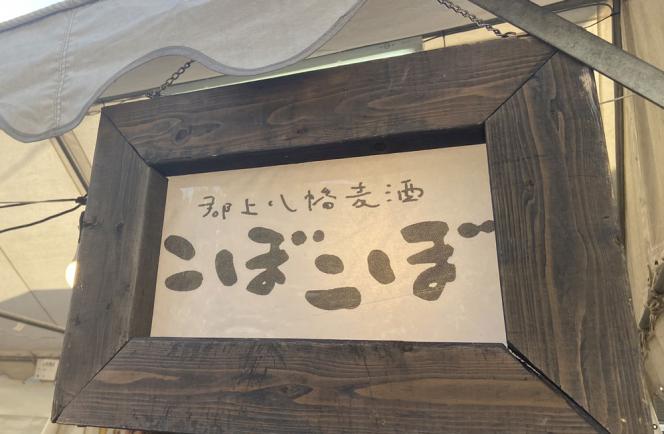 郡上八幡麦酒
こぼこぼ